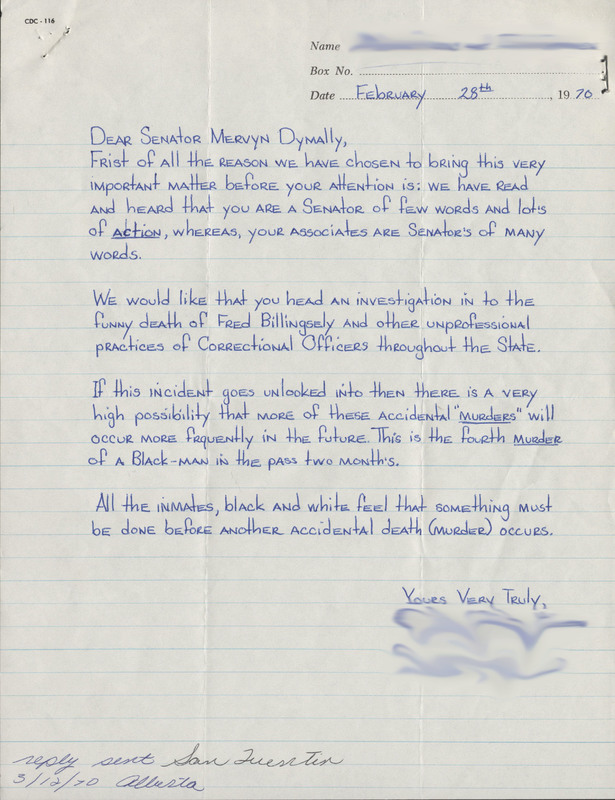 CDC - 116
Name
Box No.
Date February 28th, 1970
Dear Senator Mervyn Dymally,
Frist of all the reason we have chosen to bring this very
important matter before your attention is: we have read
and heard that you are a Senator of few words and lot's
of action, whereas, your associates are Senator's of many
words.
We would like that you head an investigation in to the
funny death of Fred Billingsely and other unprofessional
practices of Correctional Officers throughout the State.
If this incident goes unlooked into then there is a very
high possibility that more of these accidental "murders" will
occur more frquently in the future. This is the fourth murder
of a Black-man in the pass two month's.
All the inmates, black and white feel that something must
be done before another accidental death (murder) occurs.
Yours Very Truly,
reply sent San Quentin
3/12/70 Alberta